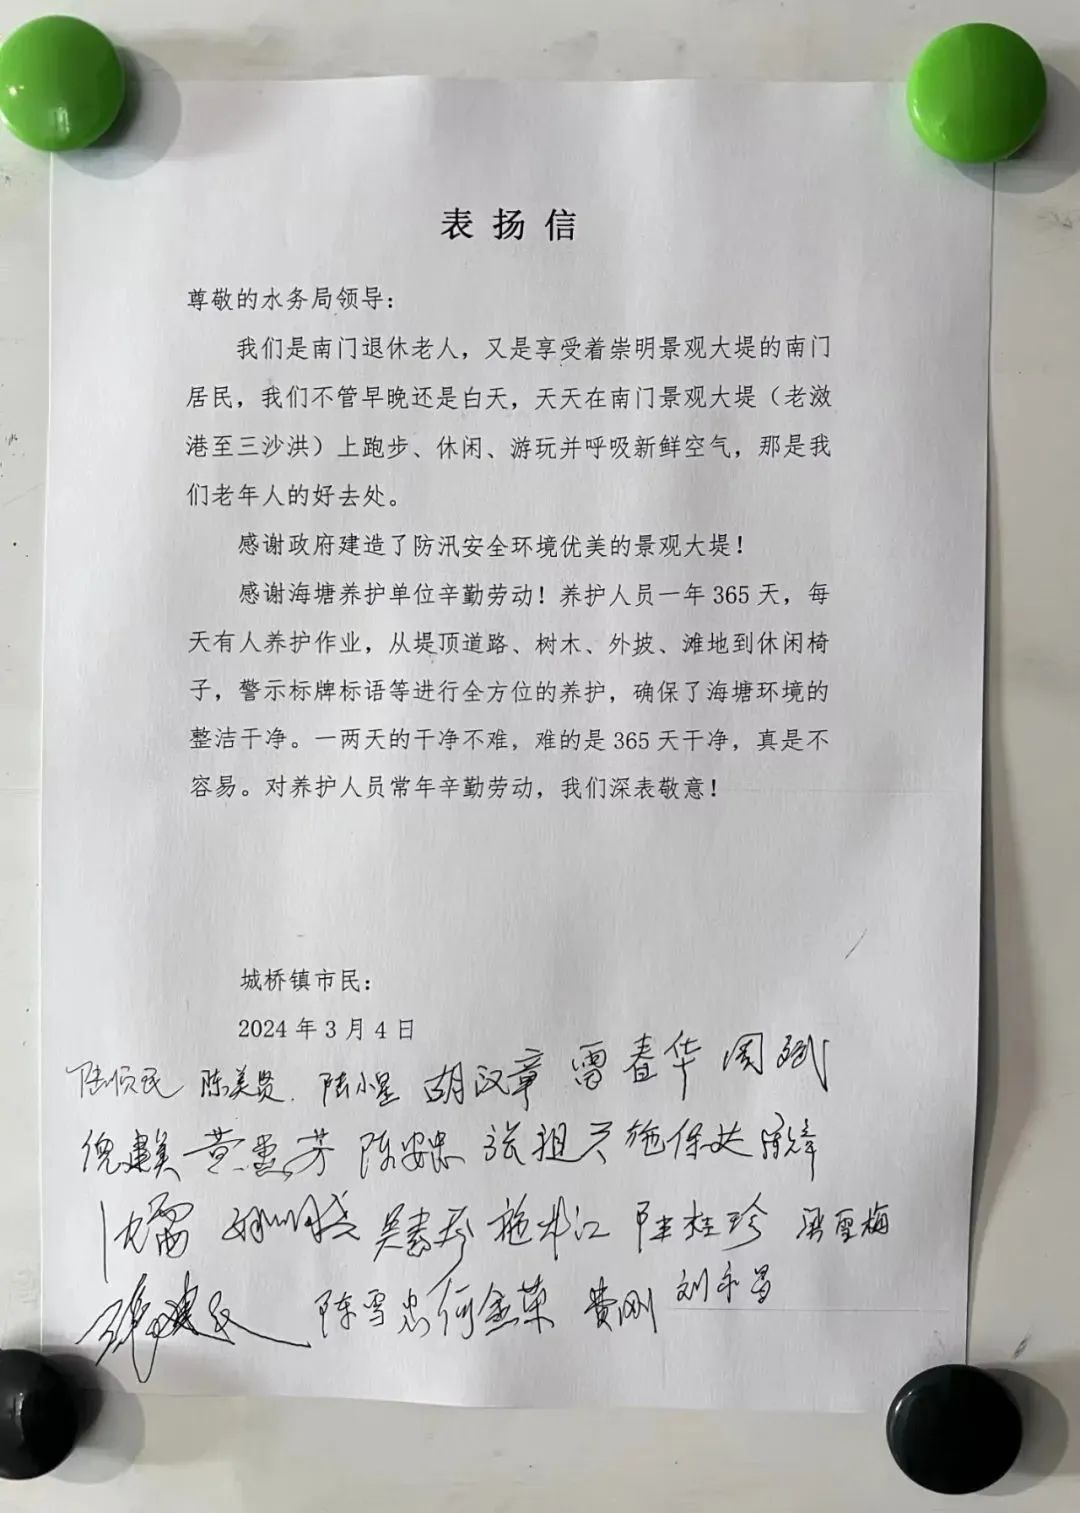 表扬信
尊敬的水务局领导：
我们是南门退休老人，又是享受着崇明景观大堤的南门
居民，我们不管早晚还是白天，天天在南门景观大堤（老滧
港至三沙洪）上跑步、休闲、游玩并呼吸新鲜空气，那是我
们老年人的好去处。
感谢政府建造了防汛安全环境优美的景观大堤！
感谢海塘养护单位辛勤劳动！养护人员一年365天，每
天有人养护作业，从堤顶道路、树木、外披、滩地到休闲椅
子，警示标牌标语等进行全方位的养护，确保了海塘环境的
整洁干净。一两天的干净不难，难的是365天干净，真是不
容易。对养护人员常年辛勤劳动，我们深表敬意！
城桥镇市民：
2024年3月4日
陈美贤 陆小星 胡汉章 雷春华 周斌
倪建美 陈安忠 张祖 施保达
沈雷 吴素珍 陈桂珍 梁雪梅
陈雪忠 何金荣 费刚 刘永昌